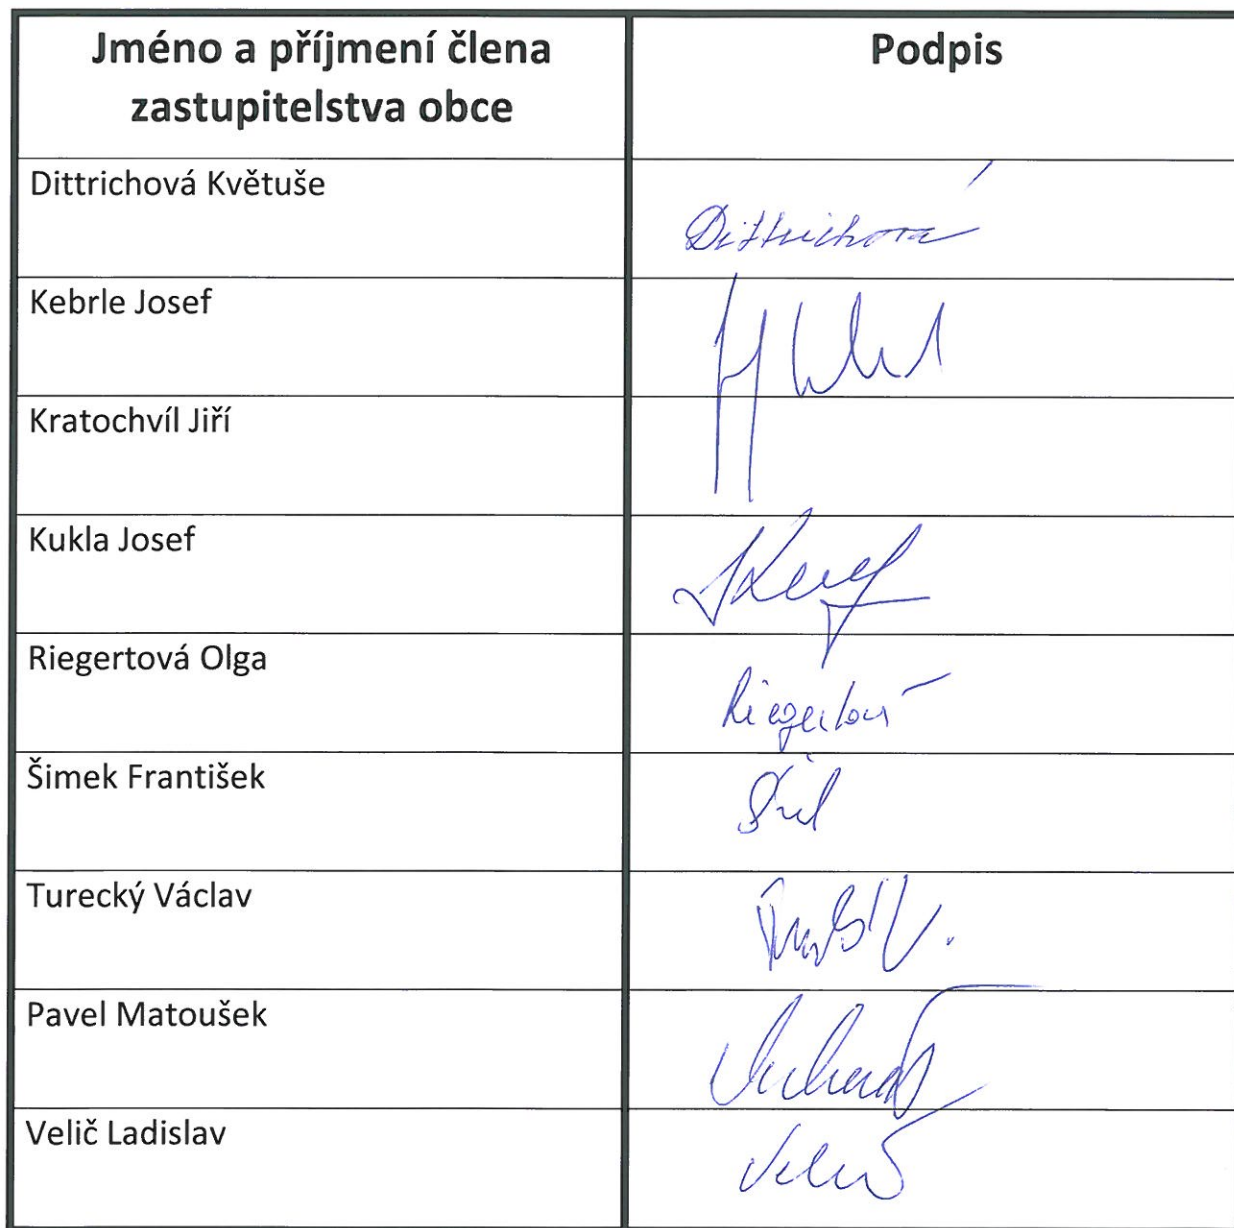 Jméno a příjmení člena
zastupitelstva obce
Podpis
Dittrichová Květuše
Dittrichová
Kebrle Josef
Kratochvíl Jiří
Kukla Josef
Riegertová Olga
Riegertová
Šimek František
Turecký Václav
Pavel Matoušek
Velič Ladislav
Velič